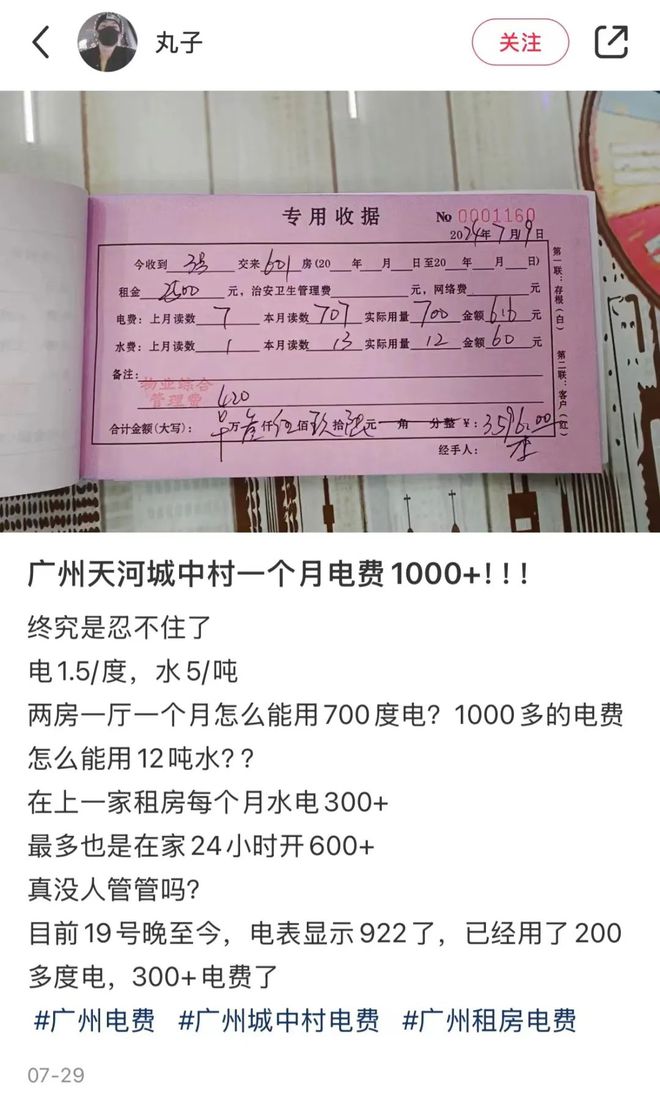 丸子
关注
专用收据
No 0001160
2024年7月19日
今收到 交来601房(20 年 月 日至20 年 月 日)
租金 2500 元,治安卫生管理费 元,网络费 元
电费:上月读数 7 本月读数 707 实际用量 700 金额 616 元
水费:上月读数 1 本月读数 13 实际用量 12 金额 60 元
备注:
物业综合
管理费 420
合计金额(大写): 万 仟 佰玖拾 元 角 分整 ¥:3596.00
经手人:
第一联:存根(白)
第二联:客户(红)
广州天河城中村一个月电费1000+!!!
终究是忍不住了
电1.5/度,水5/吨
两房一厅一个月怎么能用700度电?1000多的电费
怎么能用12吨水??
在上一家租房每个月水电300+
最多也是在家24小时开600+
真没人管管吗?
目前19号晚至今,电表显示922了,已经用了200
多度电,300+电费了
#广州电费 #广州城中村电费 #广州租房电费
07-29